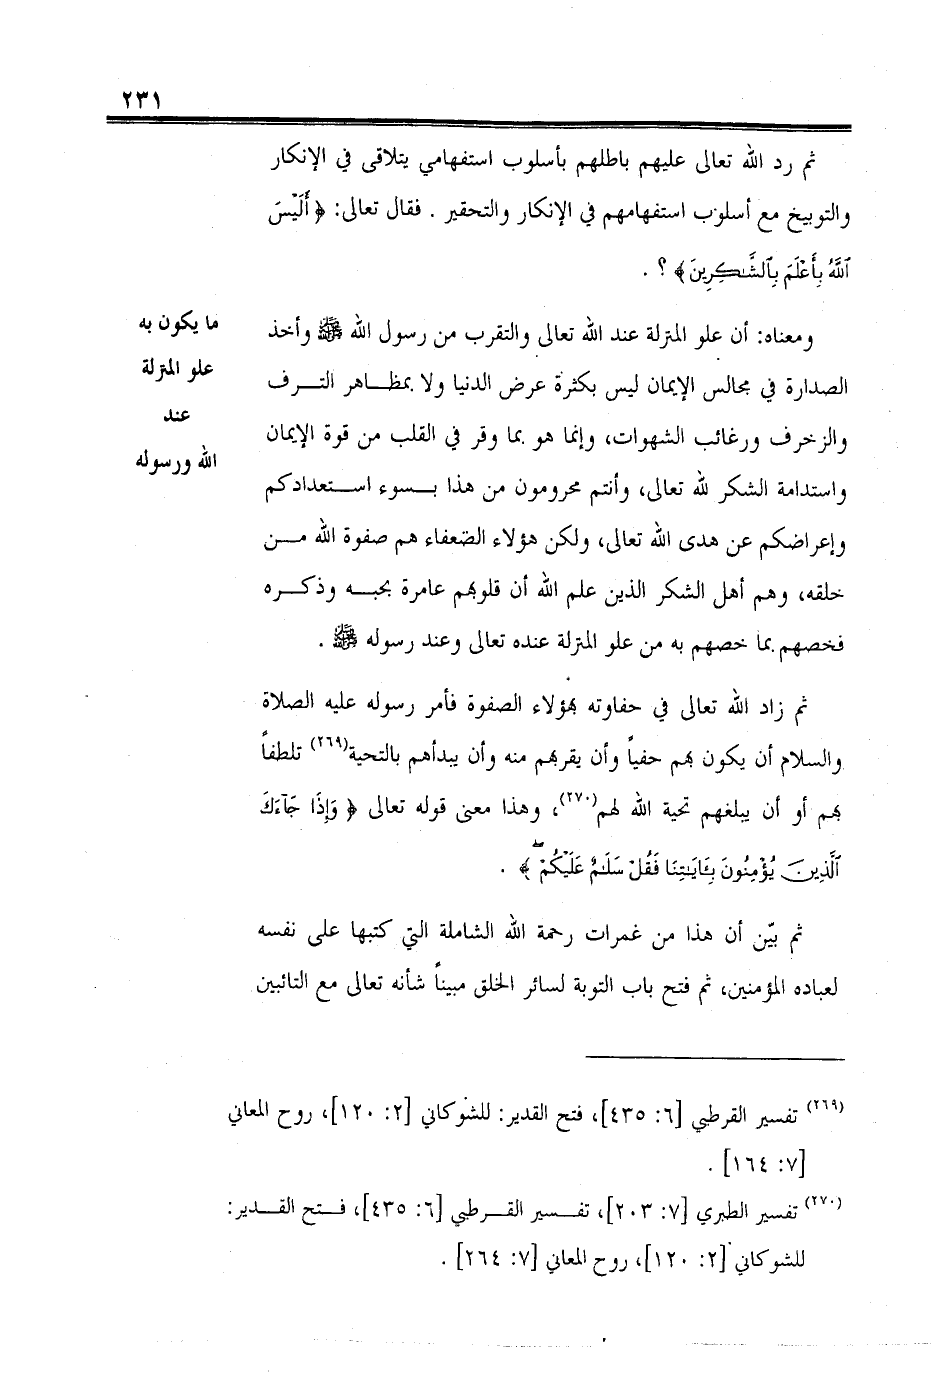 ٢٣١
ثم رد الله تعالى عليهم باطلهم بأسلوب استفهامي يتلاقى في الإنكار
والتوبيخ مع أسلوب استفهامهم في الإنكار والتحقير . فقال تعالى: ﴿ أَلَيْسَ
ٱللَّهُ بِأَعْلَمَ بِٱلشَّـٰكِرِينَ﴾ ؟ .
ما يكون به
علو المنزلة
عند
الله ورسوله
ومعناه: أن علو المنزلة عند الله تعالى والتقرب من رسول الله ﷺ وأخذ
الصدارة في مجالس الإيمان ليس بكثرة عرض الدنيا ولا بمظاهر الترف
والزخرف ورغائب الشهوات، وإنما هو بما وقر في القلب من قوة الإيمان
واستدامة الشكر لله تعالى، وأنتم محرومون من هذا بسوء استعدادكم
وإعراضكم عن هدى الله تعالى، ولكن هؤلاء الضعفاء هم صفوة الله من
خلقه، وهم أهل الشكر الذين علم الله أن قلوبهم عامرة بحبه وذكره
فخصهم بما خصهم به من علو المنزلة عنده تعالى وعند رسوله ﷺ .
ثم زاد الله تعالى في حفاوته بهؤلاء الصفوة فأمر رسوله عليه الصلاة
والسلام أن يكون بهم حفياً وأن يقربهم منه وأن يبدأهم بالتحية(٢٦٩) تلطفاً
بهم أو أن يبلغهم تحية الله لهم(٢٧٠)، وهذا معنى قوله تعالى ﴿ وَإِذَا جَآءَكَ
ٱلَّذِينَ يُؤْمِنُونَ بِـَٔايَـٰتِنَا فَقُلْ سَلَـٰمٌ عَلَيْكُمْ ۖ ﴾ .
ثم بيّن أن هذا من غمرات رحمة الله الشاملة التي كتبها على نفسه
لعباده المؤمنين، ثم فتح باب التوبة لسائر الخلق مبيناً شأنه تعالى مع التائبين
(٢٦٩) تفسير القرطبي [٦: ٤٣٥]، فتح القدير: للشوكاني [٢: ١٢٠]، روح المعاني
[٧: ١٦٤] .
(٢٧٠) تفسير الطبري [٧: ٢٠٣]، تفسير القرطبي [٦: ٤٣٥]، فتح القدير:
للشوكاني [٢: ١٢٠]، روح المعاني [٧: ٢٦٤] .